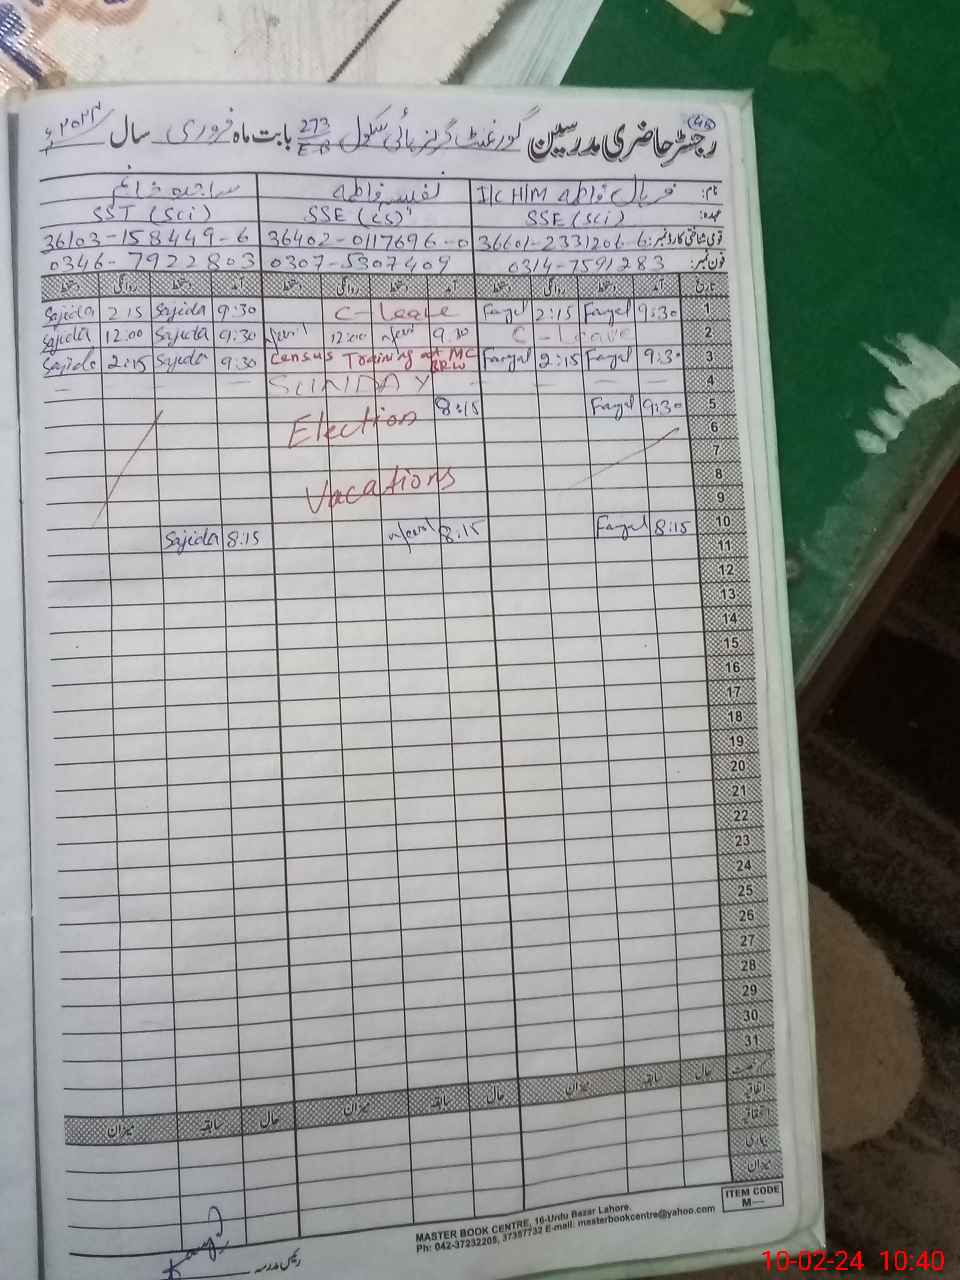 (45)
رجسٹر حاضری مدرسین گورنمنٹ گرلز ہائی سکول 273/E.B بابت ماہ فروری سال ۲۰۲۴ء
نام: فریال فاطمہ I/C H/M نفیسہ فاطمہ ساجدہ خانم
عہدہ: SSE (Sci) SSE (CS) SST (Sci)
قومی شناختی کارڈ نمبر: 36601-2331206-6 36402-0117696-0 36103-158449-6
فون نمبر: 0314-7591283 0307-5307409 0346-7922803
تاریخ آمد دستخط روانگی دستخط آمد دستخط روانگی دستخط آمد دستخط روانگی دستخط
1 9:30 Faryal 2:15 Faryal C-Leave 9:30 Sajida 2:15 Sajida
2 C-Leave 9:30 12:00 9:30 Sajida 12:00 Sajida
3 9:30 Faryal 2:15 Faryal Census Training at MC BRW 9:30 Sajida 2:15 Sajida
4 SUNDAY
5 9:30 Faryal 8:15
6 Election
7
8 Vacations
9
10 8:15 Faryal 8:15 8:15 Sajida
11
12
13
14
15
16
17
18
19
20
21
22
23
24
25
26
27
28
29
30
31
حال سابقہ میزان حال سابقہ میزان حال سابقہ میزان
اتفاقیہ
بیماری
میزان
رئیس مدرسہ
ITEM CODE
M—
MASTER BOOK CENTRE, 16-Urdu Bazar Lahore.
Ph: 042-37232205, 37357732 E-mail: masterbookcentre@yahoo.com
10-02-24 10:40